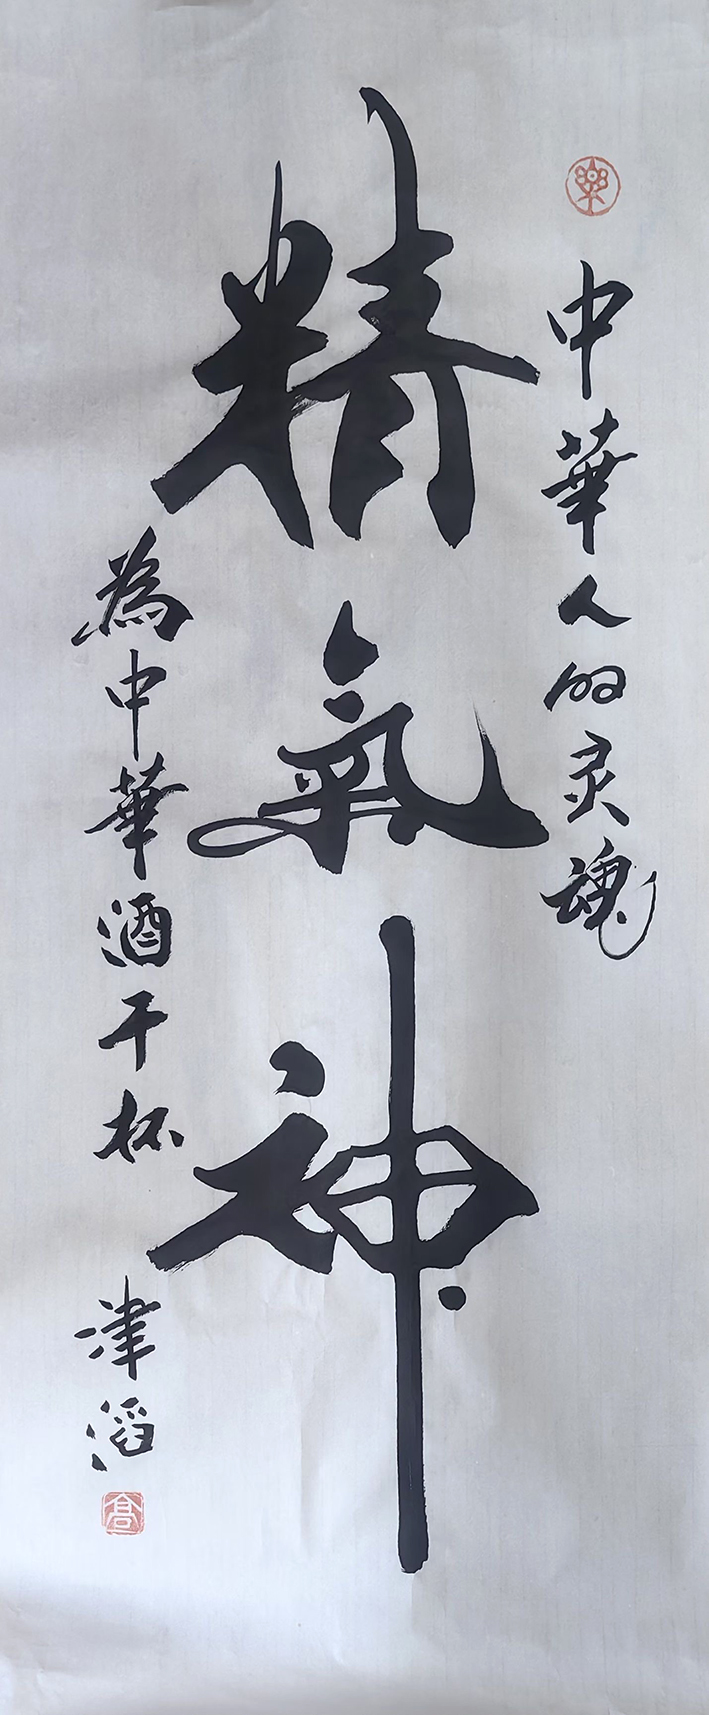 中華人的灵魂
精氣神
為中華酒干杯
津滔
高